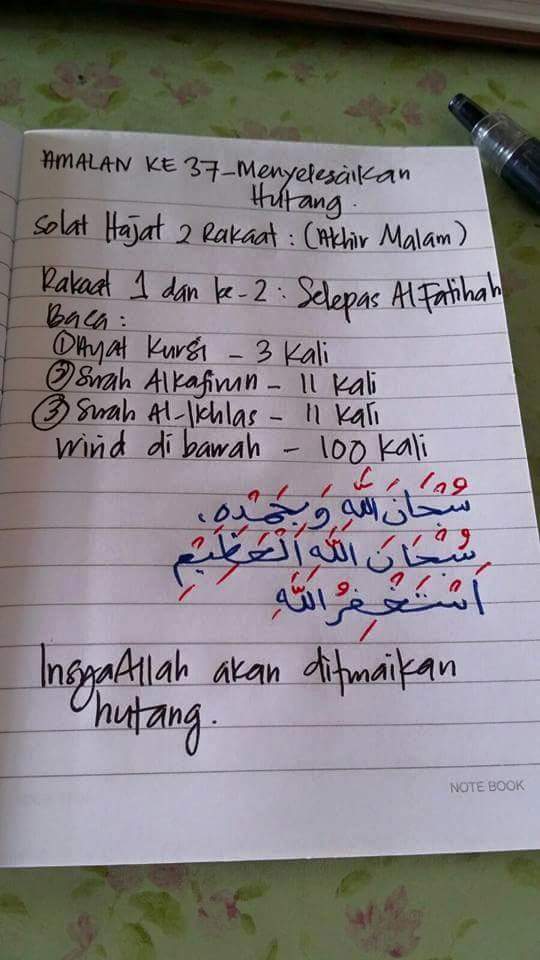 AMALAN KE 37-Menyelesaikan
Hutang.
Solat Hajat 2 Rakaat : (Akhir Malam)
Rakaat 1 dan ke-2 : Selepas Al Fatihah
Baca :
① Ayat Kursi - 3 Kali
② Surah Alkafirun - 11 Kali
③ Surah Al-Ikhlas - 11 Kali
Wirid di bawah - 100 Kali
سُبْحَانَ اللّٰهِ وَبِحَمْدِهِ،
سُبْحَانَ اللّٰهِ الْعَظِيْمِ
اَسْتَغْفِرُ اللّٰهَ
InsyaAllah akan
hutang.
NOTE BOOK